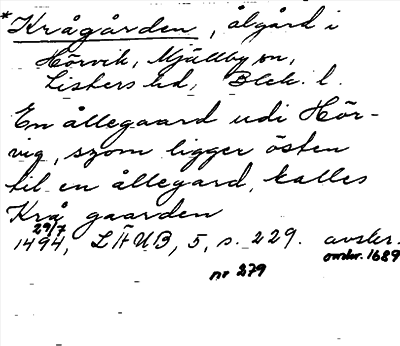 *Krågården, ålgård i
Hörvik, Mjällby sn,
Listers hd, Blek. l.
En ållegaard udi Hör-
vig, szom ligger östen
til en ållegard, kalles
Krå gaarden
29/7
1494, LÄUB, 5, s. 229. avskr.
omkr. 1689
nr 279